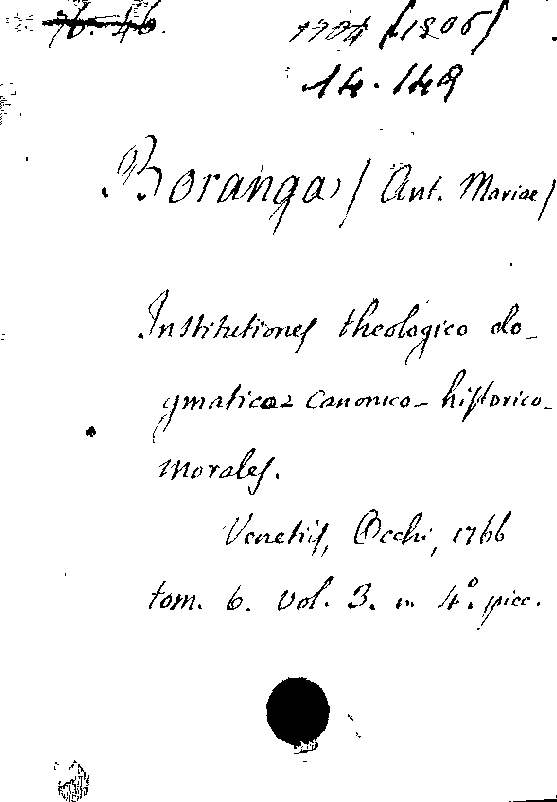 76. 46.
1704 (1306)
14. 149
Boranga) (Ant. Mariae)
Institutiones theologico do-
gmaticae canonico-historico-
morales.
Venetiis, Occhi, 1766
tom. 6. vol. 3. in 4º picc.